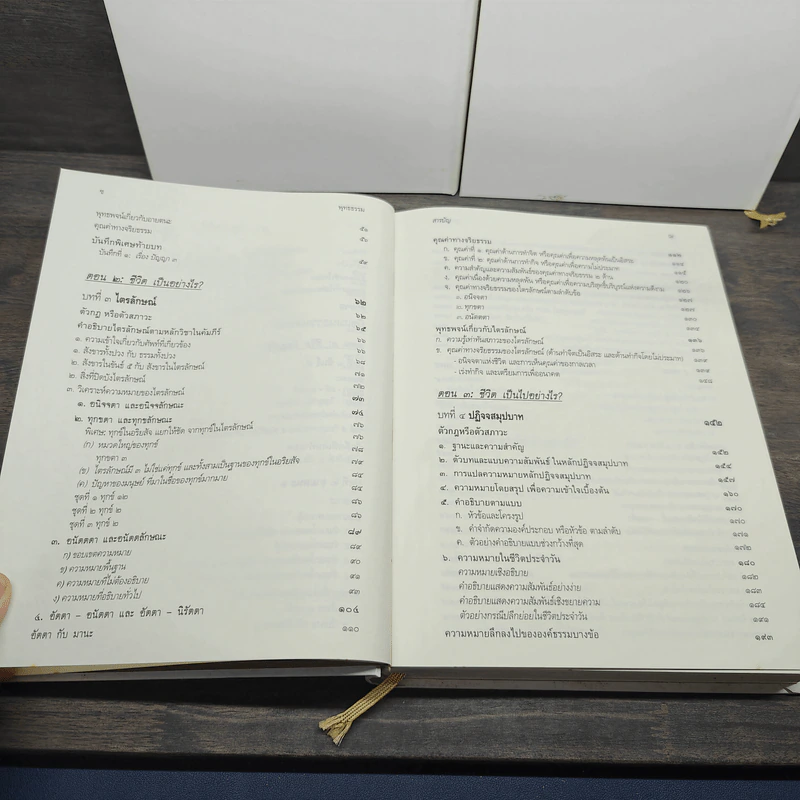 ช
พุทธธรรม
พุทธพจน์เกี่ยวกับอายตนะ ๕๑
คุณค่าทางจริยธรรม ๕๖
บันทึกพิเศษท้ายบท
บันทึกที่ ๑: เรื่อง ปัญญา ๓ ๕๙
ตอน ๒: ชีวิต เป็นอย่างไร?
บทที่ ๓ ไตรลักษณ์ ๖๒
ตัวกฎ หรือตัวสภาวะ ๖๒
คำอธิบายไตรลักษณ์ตามหลักวิชาในคัมภีร์ ๖๕
๑. ความเข้าใจเกี่ยวกับศัพท์ที่เกี่ยวข้อง
๑. สังขารทั้งปวง กับ ธรรมทั้งปวง
๒. สังขารในขันธ์ ๕ กับ สังขารในไตรลักษณ์
๒. สิ่งที่ปิดบังไตรลักษณ์ ๗๑
๓. วิเคราะห์ความหมายของไตรลักษณ์ ๗๒
๑. อนิจจตา และอนิจจลักษณะ ๗๓
๒. ทุกขตา และทุกขลักษณะ ๗๔
พิเศษ: ทุกข์ในอริยสัจ แยกให้ชัด จากทุกข์ในไตรลักษณ์ ๗๖
(ก) หมวดใหญ่ของทุกข์ ๗๖
ทุกขตา ๓ ๗๘
(ข) ไตรลักษณ์มี ๓ ไม่ใช่แค่ทุกข์ และทั้งสามเป็นฐานของทุกข์ในอริยสัจ ๗๙
(ค) ปัญหาของมนุษย์ ที่มาในชื่อของทุกข์มากมาย ๘๔
ชุดที่ ๑ ทุกข์ ๑๒ ๘๔
ชุดที่ ๒ ทุกข์ ๒ ๘๖
ชุดที่ ๓ ทุกข์ ๒ ๘๖
๓. อนัตตตา และอนัตตลักษณะ ๘๗
ก) ขอบเขตความหมาย ๘๙
ข) ความหมายพื้นฐาน ๙๐
ค) ความหมายที่ไม่ต้องอธิบาย ๙๑
ง) ความหมายที่อธิบายทั่วไป ๙๓
๔. อัตตา – อนัตตา และ อัตตา – นิรัตตา ๑๐๔
อัตตา กับ มานะ ๑๑๐
สารบัญ
คุณค่าทางจริยธรรม
ก. คุณค่าที่ ๑: คุณค่าด้านการทำจิต หรือคุณค่าเพื่อความหลุดพ้นเป็นอิสระ
ข. คุณค่าที่ ๒: คุณค่าด้านการทำกิจ หรือคุณค่าเพื่อความไม่ประมาท
ค. ความสำคัญและความสัมพันธ์ของคุณค่าทางจริยธรรม ๒ ด้าน
ง. คุณค่าเนื่องด้วยความหลุดพ้น หรือคุณค่าเพื่อความบริสุทธิ์บริบูรณ์แห่งความดีงาม
จ. คุณค่าทางจริยธรรมของไตรลักษณ์ตามลำดับข้อ
๑. อนิจจตา
๒. ทุกขตา
๓. อนัตตตา
พุทธพจน์เกี่ยวกับไตรลักษณ์
ก. ความรู้เท่าทันสภาวะของไตรลักษณ์
ข. คุณค่าทางจริยธรรมของไตรลักษณ์ (ด้านทำจิตเป็นอิสระ และด้านทำกิจโดยไม่ประมาท)
- อนิจจาแห่งชีวิต และการเห็นคุณค่าของกาลเวลา
- เร่งทำกิจ และเตรียมการเพื่ออนาคต
ตอน ๓: ชีวิต เป็นไปอย่างไร?
บทที่ ๔ ปฏิจจสมุปบาท ๑๕๒
ตัวกฎหรือตัวสภาวะ
๑. ฐานะและความสำคัญ ๑๕๒
๒. ตัวบทและแบบความสัมพันธ์ ในหลักปฏิจจสมุปบาท ๑๕๔
๓. การแปลความหมายหลักปฏิจจสมุปบาท ๑๕๗
๔. ความหมายโดยสรุป เพื่อความเข้าใจเบื้องต้น ๑๖๐
๕. คำอธิบายตามแบบ ๑๗๐
ก. หัวข้อและโครงรูป ๑๗๐
ข. คำจำกัดความองค์ประกอบ หรือหัวข้อ ตามลำดับ ๑๗๑
ค. ตัวอย่างคำอธิบายแบบช่วงกว้างที่สุด ๑๗๒
๖. ความหมายในชีวิตประจำวัน ๑๘๐
ความหมายเชิงอธิบาย ๑๘๒
คำอธิบายแสดงความสัมพันธ์อย่างง่าย ๑๘๓
คำอธิบายแสดงความสัมพันธ์เชิงขยายความ ๑๘๔
ตัวอย่างกรณีปลีกย่อยในชีวิตประจำวัน ๑๙๑
ความหมายลึกลงไปขององค์ธรรมบางข้อ ๑๙๓